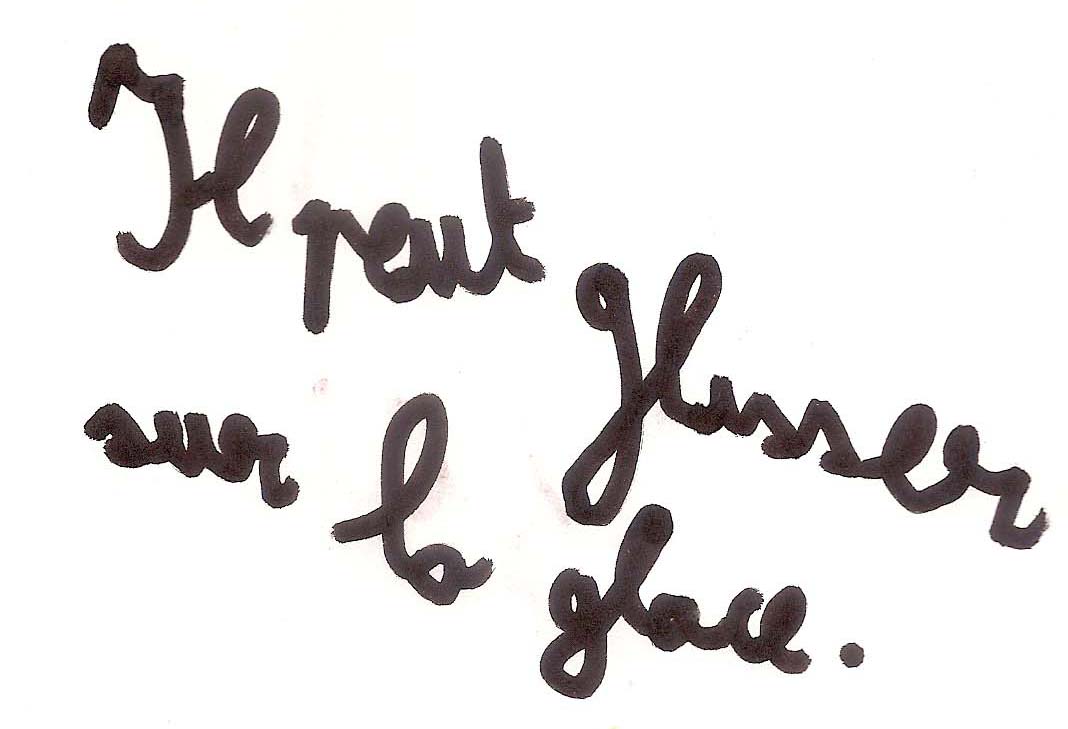 Il peut glisser
sur la glace.